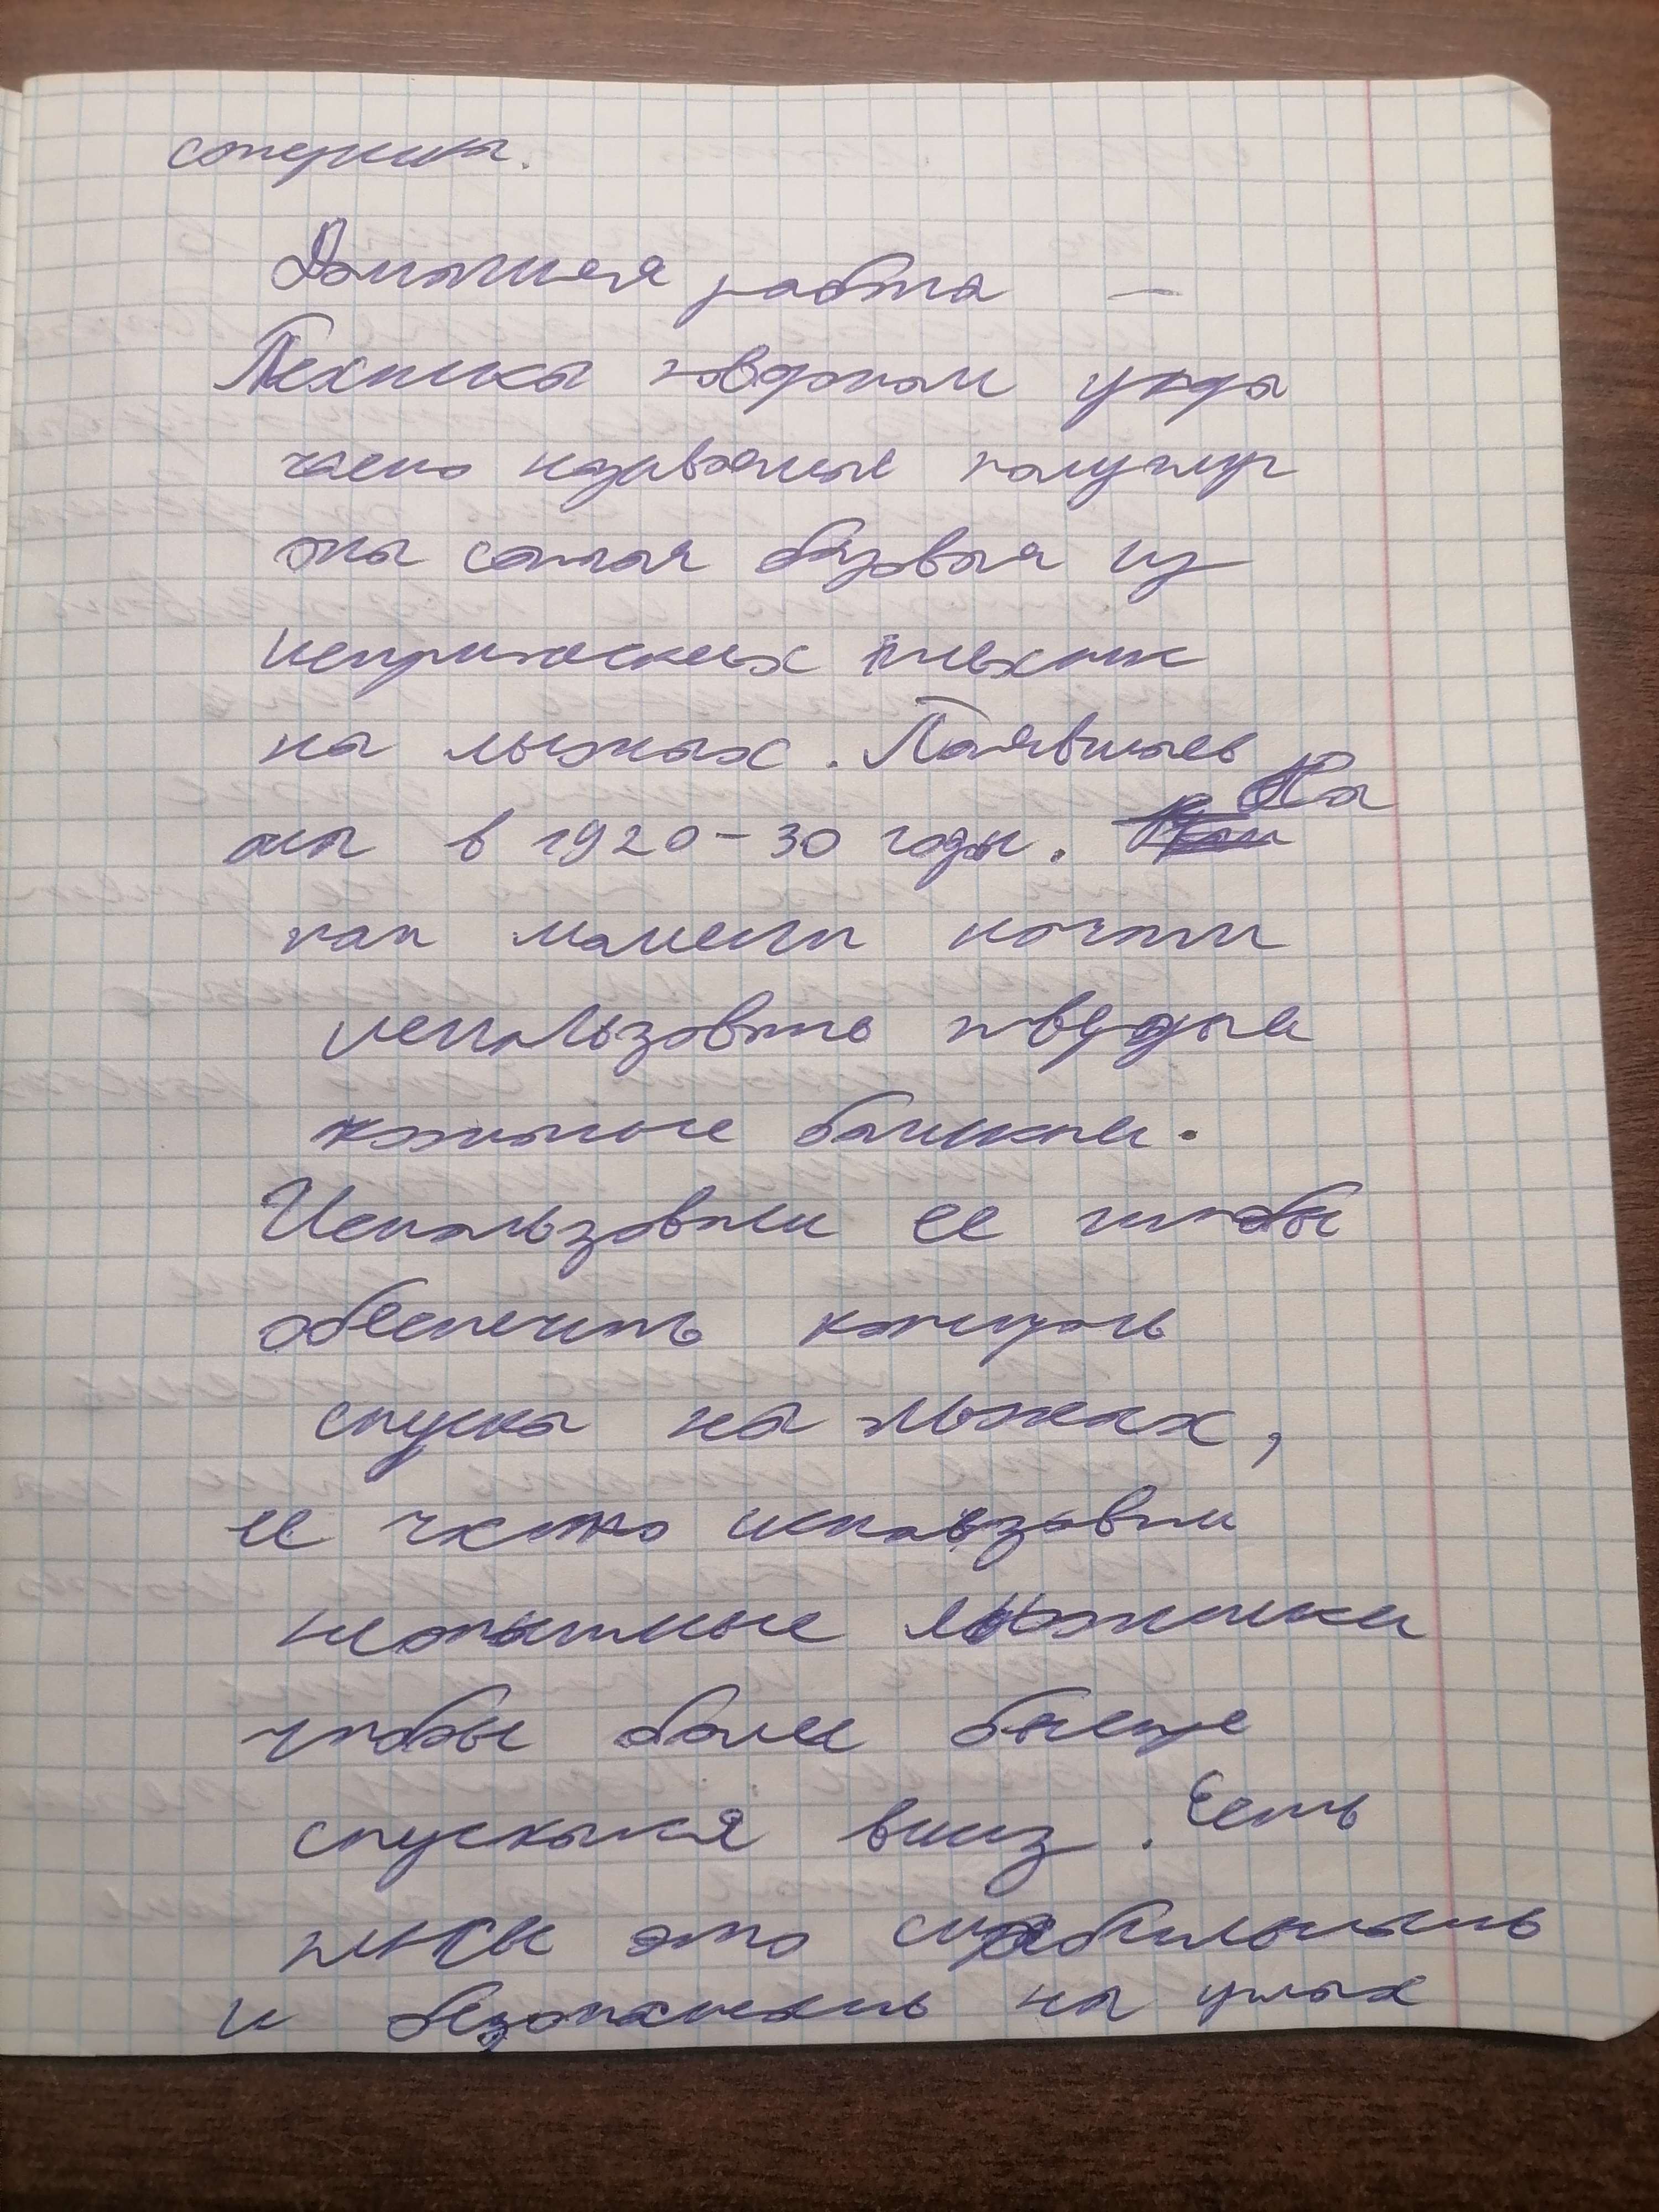 соперника.
Домашняя работа —
Техника поворотом упора
часто называемые полуплуг
эта самая базовая из
исторических техник
на лыжах. Появилась
она в 1920-30 годы. На
как начали
использовать твердые
кожаные ботинки.
Использовали ее чтобы
обеспечить контроль
спуска на лыжах,
ее часто использовали
неопытные лыжники
чтобы более быстре
спускатся вниз. Есть
плюсы это стабильнасть
и безопаснасть на